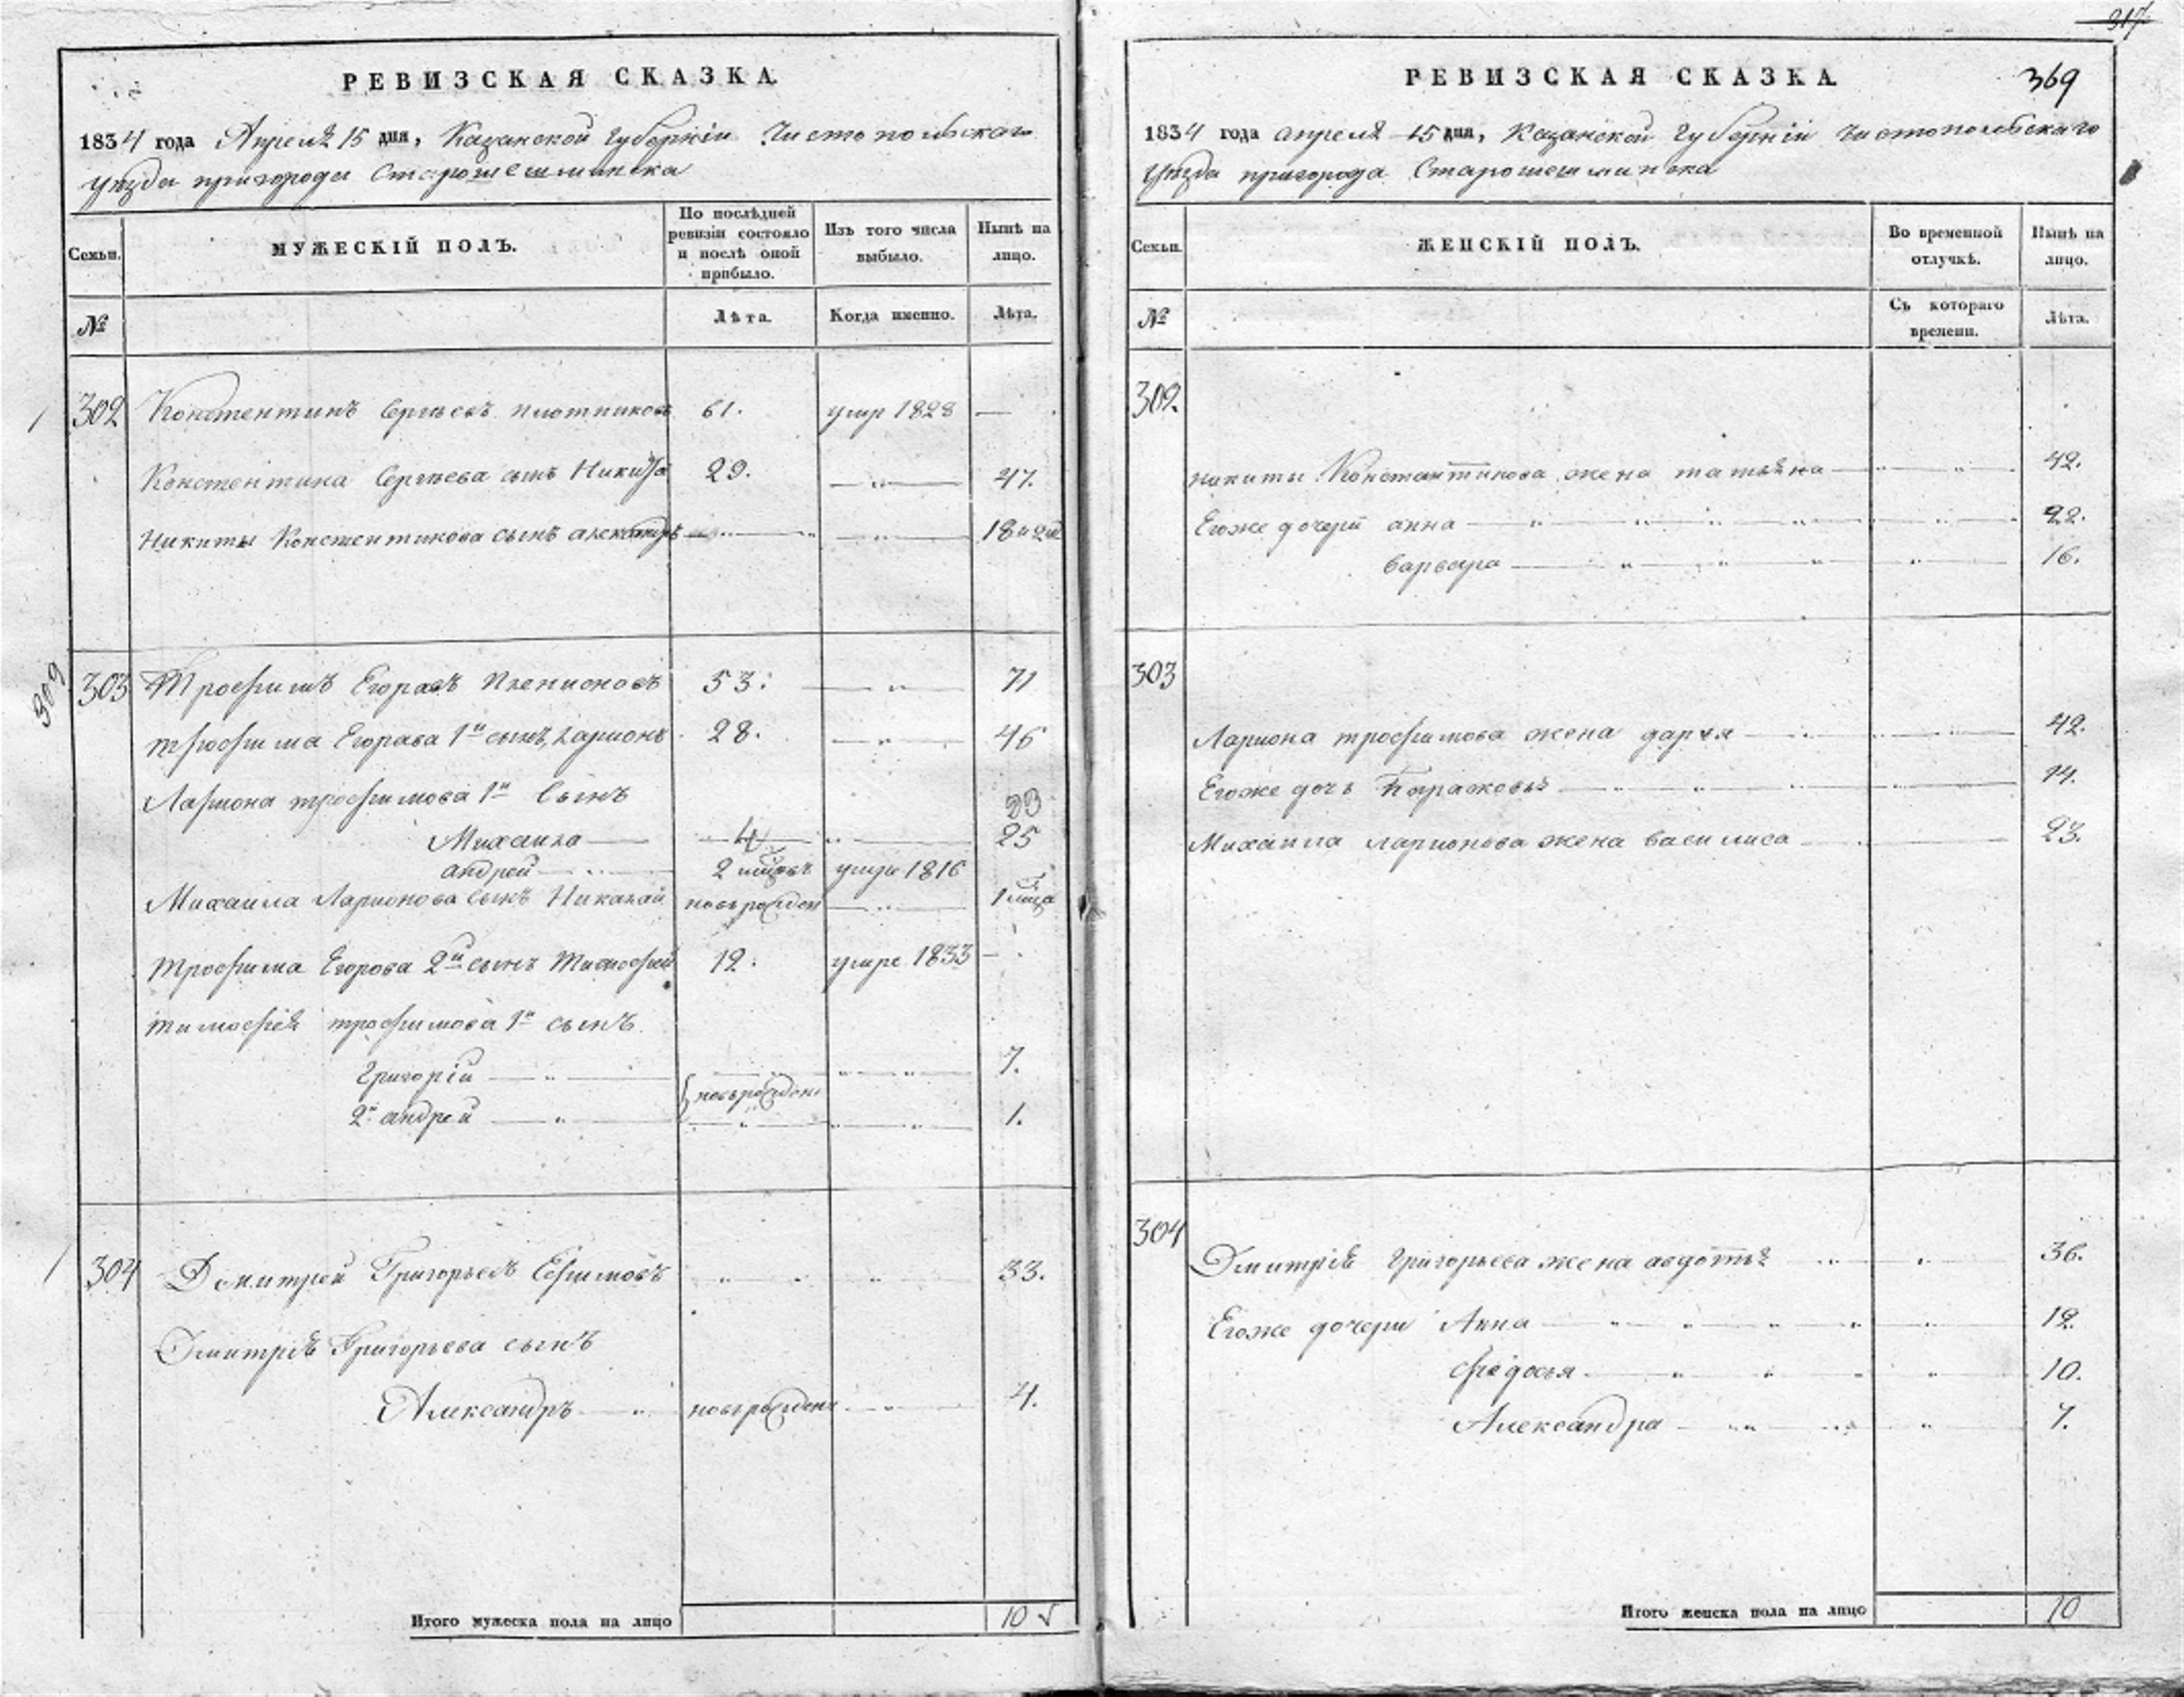 РЕВИЗСКАЯ СКАЗКА.
1834 года Апреля 15 дня, Казанской Губернiи Чистопольскаго
уѣзда пригорода Старошешминска
Семьи.
МУЖЕСКIЙ ПОЛЪ.
По послѣдней ревизiи состояло и послѣ оной прибыло.
Изъ того числа выбыло.
Нынѣ на лицо.
№
Лѣта.
Когда именно.
Лѣта.
302 Констентинъ Сергѣевъ плотниковъ 61. умре 1828 —
Констентина Сергѣева сынъ Никита 29. — „ — 47.
Никиты Констентинова сынъ александръ — „ — — „ — 18
309
303 Трофимъ Егоравъ 53. — „ — 71
трофима Егорава 1й сынъ, Ларионъ 28. — „ — 46
Лариона трофимова 1й Сынъ
Михаила — 4 25
андрей — 2 умре 1816
Михаила Ларионова сынъ Никалай новърожден — „ — 1
трофима Егорова 2й сынъ Тимофей 12. умре 1833 —
тимофея трофимова 1й сынъ
Григорiй — „ — — „ — 7.
новърожден
2й андрей — „ — „ — — „ — 1.
304 Дмитрей Григорьевъ Ефимовъ „ „ „ 33.
Дмитрiя Григорьева сынъ
Александръ — „ новърожден — „ — 4.
Итого мужеска пола на лицо 10
317
РЕВИЗСКАЯ СКАЗКА. 369
1834 года апреля 15 дня, Казанской Губернiи Чистопольскаго
уѣзда пригорода Старошешминска
Семьи.
ЖЕНСКIЙ ПОЛЪ.
Во временной отлучкѣ.
Нынѣ на лицо.
№
Съ котораго времени.
Лѣта.
302.
никиты Константинова жена татьяна — „ — 42.
Егоже дочери анна — „ — 22.
варвара — „ — 16.
303
Лариона трофимова жена дарья — „ — 42.
Егоже дочь — „ — 14.
Михаила ларионова жена василиса — 23.
304
Дмитрiя Григорьева жена авдотья „ „ 36.
Егоже дочери Анна — „ „ 12.
федосья — „ „ 10.
Александра — „ „ 7.
Итого женска пола на лицо 10